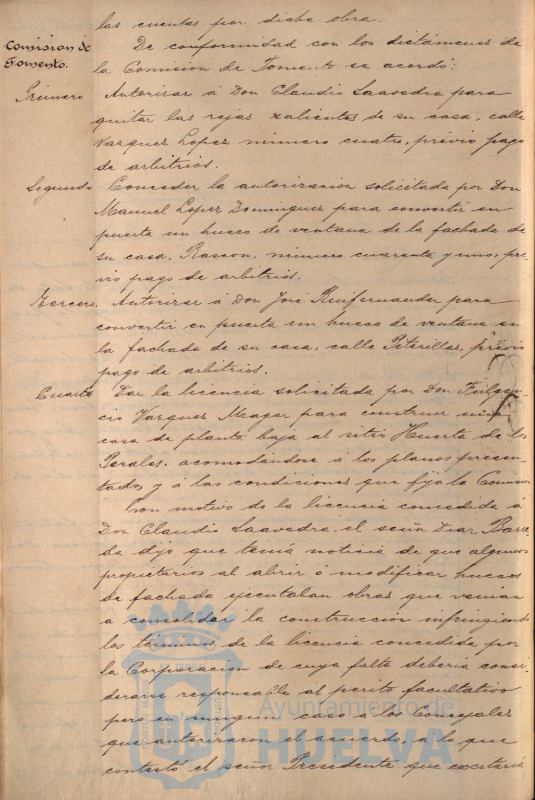 las cuentas por dicha obra.
Comision de Fomento.
De conformidad con los dictámenes de
la Comision de Fomento se acordó:
Primero Autorizar á Don Claudio Saavedra para
quitar las rejas salientes de su casa, calle
Vazquez Lopez número cuatro, prévio pago
de arbitrios.
Segundo Conceder la autorizacion solicitada por Don
Manuel Lopez Dominguez para convertir en
puerta un hueco de ventana de la fachada de
su casa, Rascon, número cuarenta y uno, pré-
vio pago de arbitrios.
Tercero. Autorizar á Don José Ruifernandez para
convertir en puerta un hueco de ventana en
la fachada de su casa, calle Piterillas, prévio
pago de arbitrios.
Cuarto Dar la licencia solicitada por Don Fulgen-
cio Vazquez Mager para construir una
casa de planta baja al sitio Huerta de los
Perales, acomodándose á los planos presen-
tados y á las condiciones que fija la Comision
Con motivo de la licencia concedida á
Don Claudio Saavedra el señor Diaz Barre-
da dijo que tenía noticia de que algunos
propietarios al abrir ó modificar huecos
de fachada ejecutaban obras que venían
a consolidar la construccion infringiendo
los términos de la licencia concedida por
la Corporacion de cuya falta debería consi-
derarse responsable al perito facultativo
pero en ningun caso a los Concejales
que autorizaron el acuerdo, a lo que
contestó el señor Presidente que excitaría
Ayuntamiento de
HUELVA